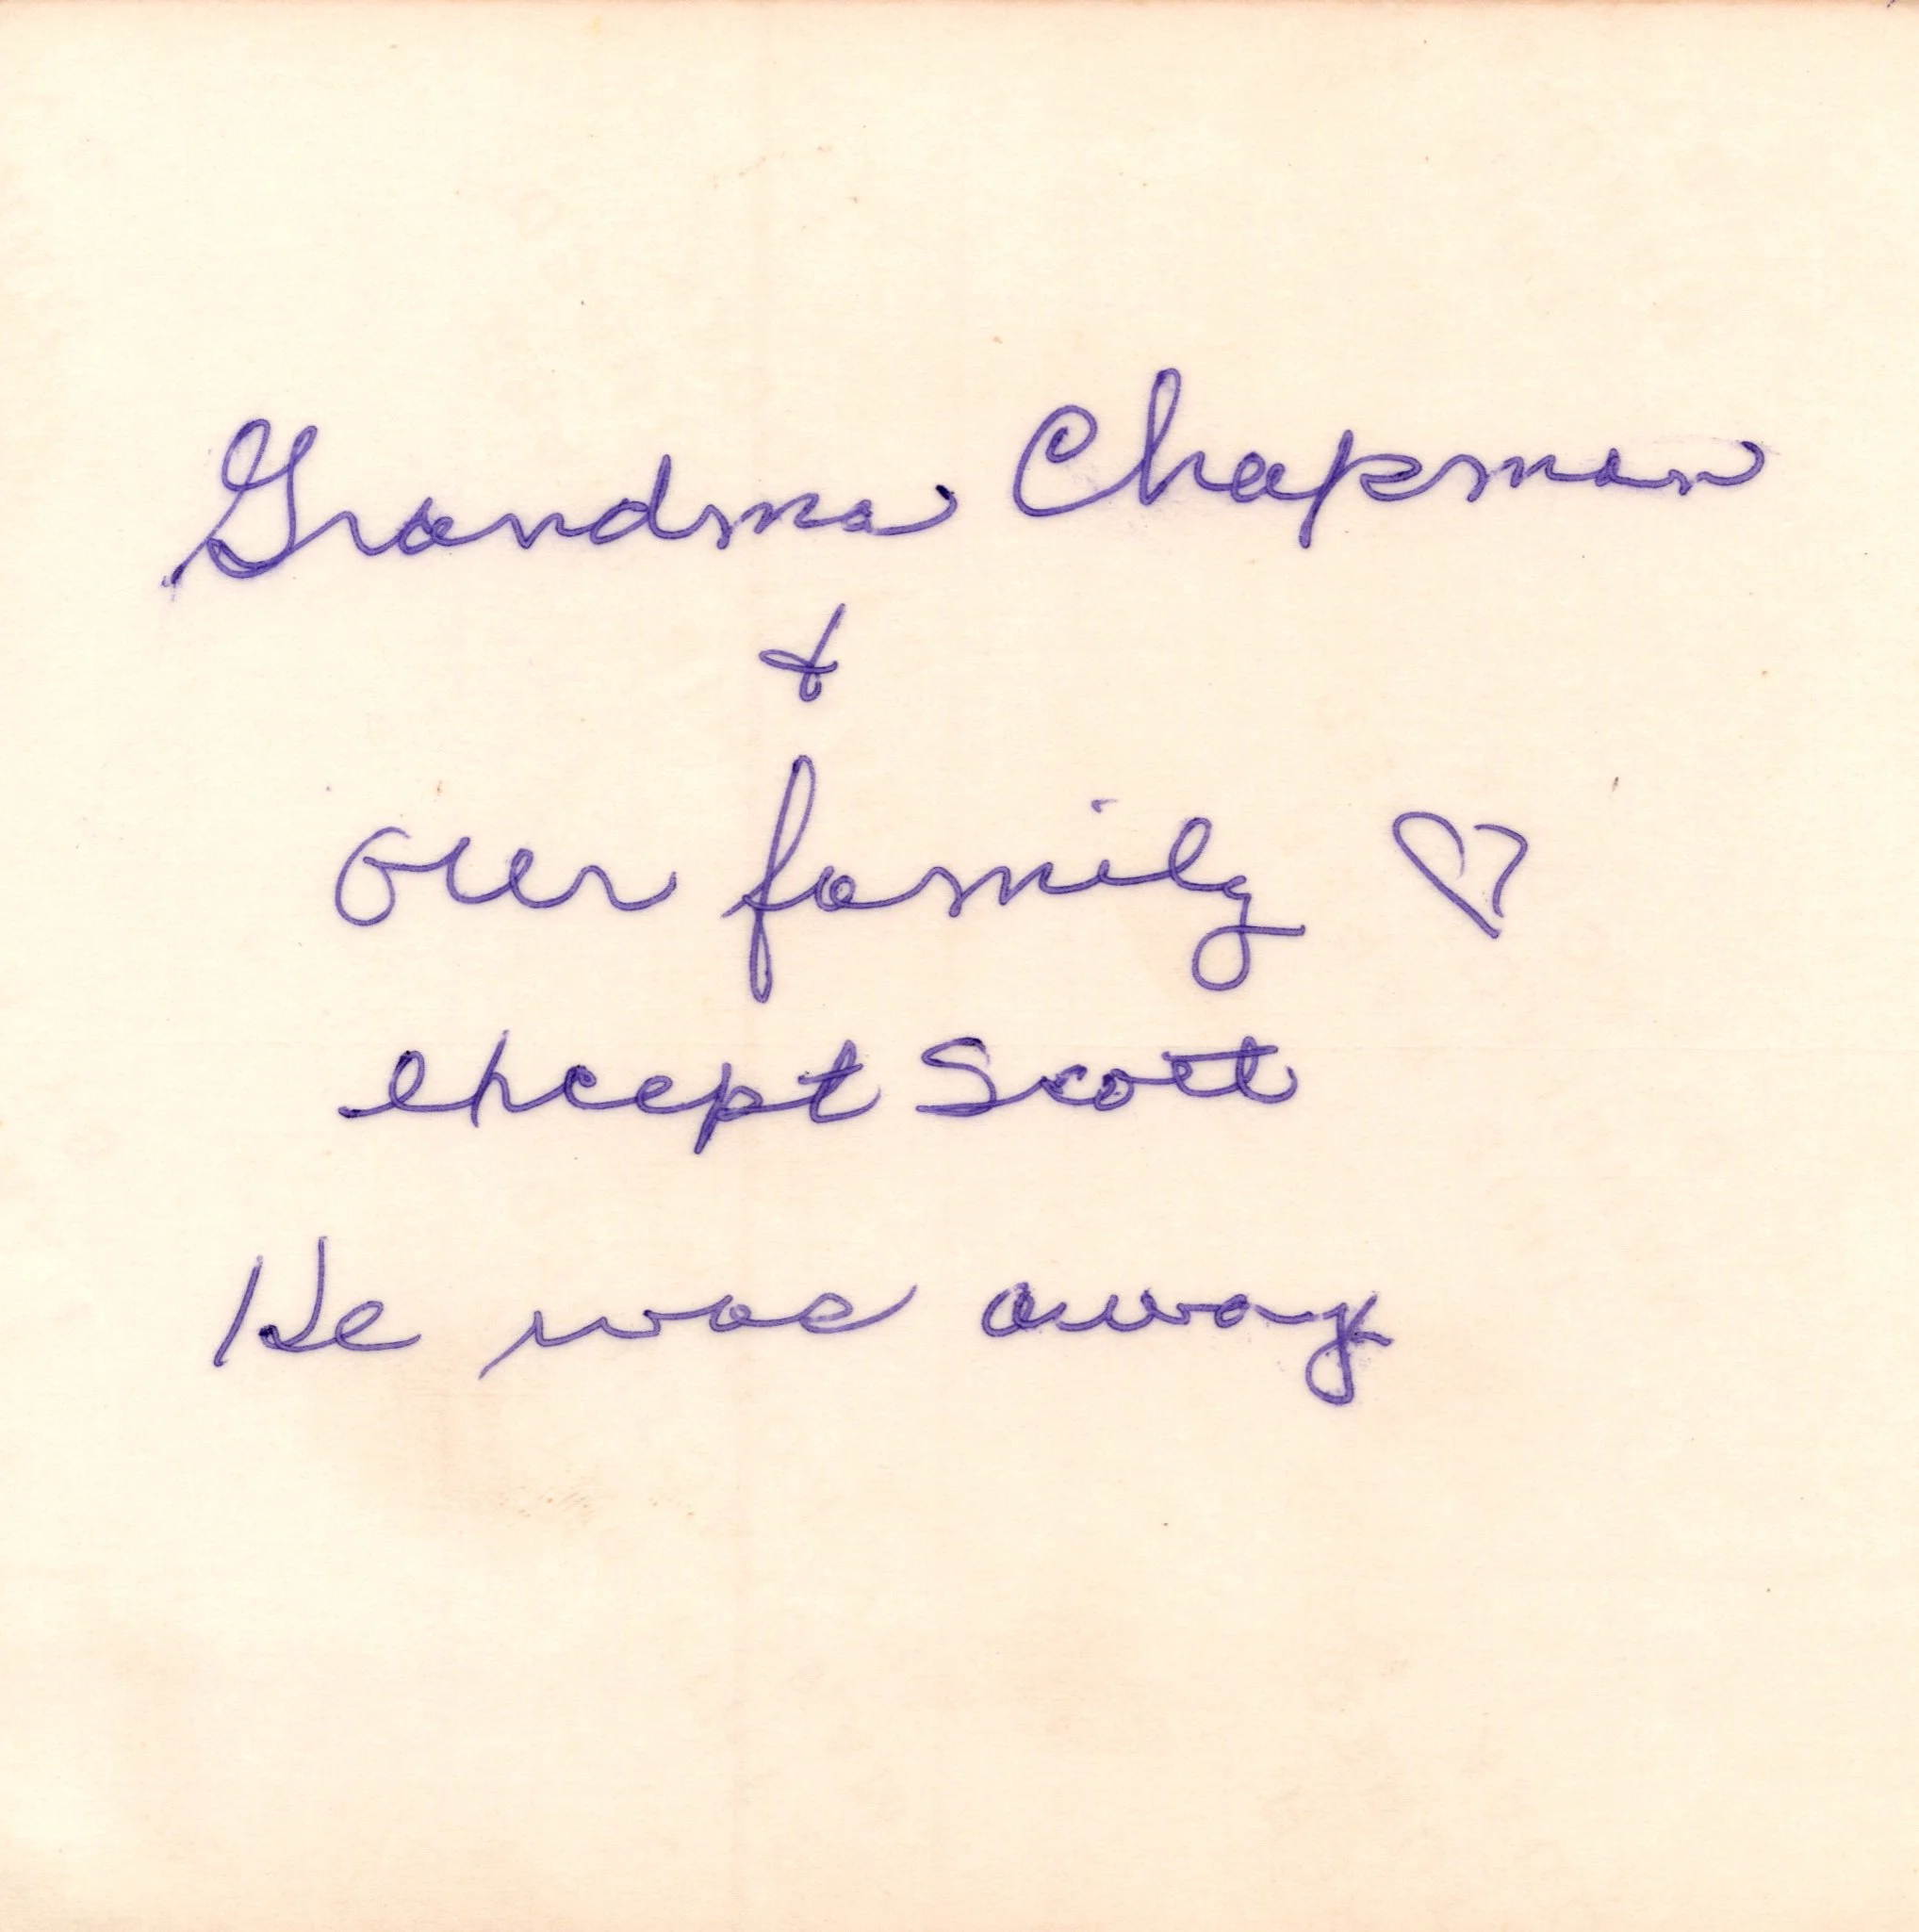 Grandma Chapman
&
our family ♡
except Scott
He was away